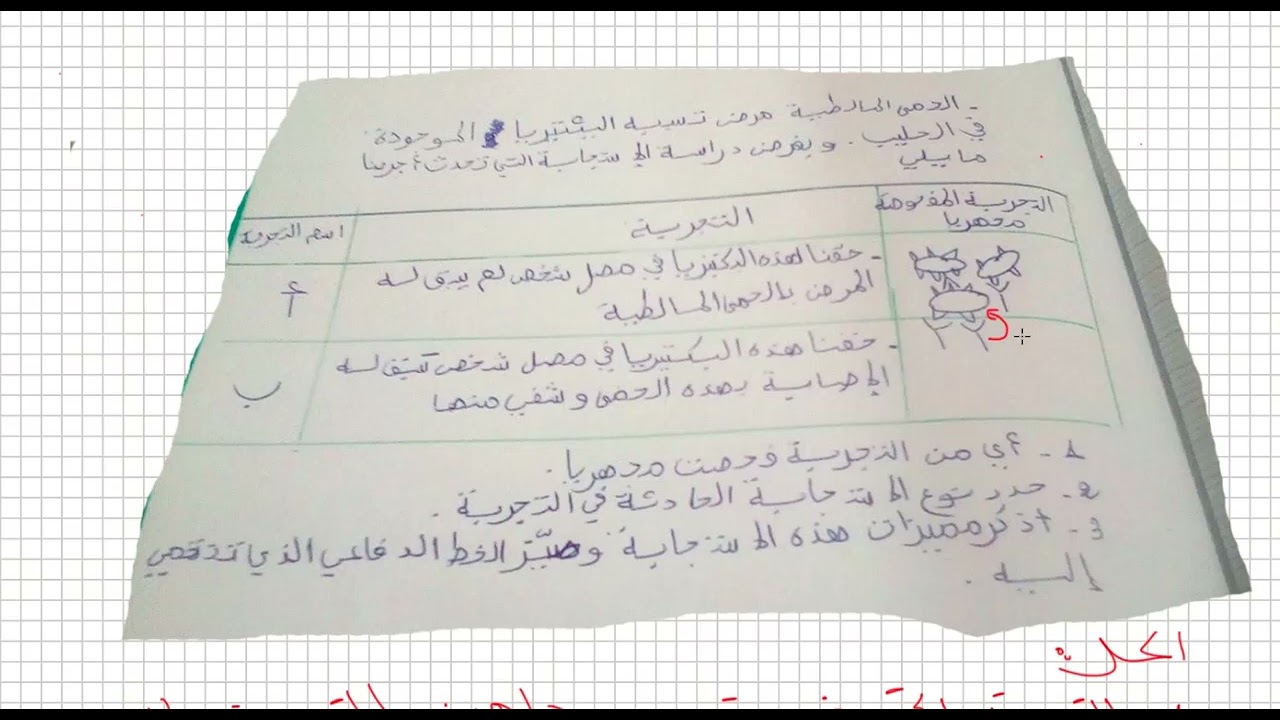 - الحمى المالطية مرض تسببه البكتيريا الموجودة
في الحليب . وبغرض دراسة الاستجابة التي تحدث أجرينا
مايلي
التجربة المفحوصة مجهريا
التجربة
اسم التجربة
- حقنا هذه البكتيريا في مصل شخص لم يسبق له
المرض بالحمى المالطية
أ
- حقنا هذه البكتيريا في مصل شخص سبق له
الإصابة بهذه الحمى وشفي منها
ب
1 - أي من التجربة فحصت مجهريا .
2 - حدد نوع الاستجابة الحادثة في التجربة .
3 - أذكر مميزات هذه الاستجابة وميّز الخط الدفاعي الذي تنتمي
إليه .
الحل: